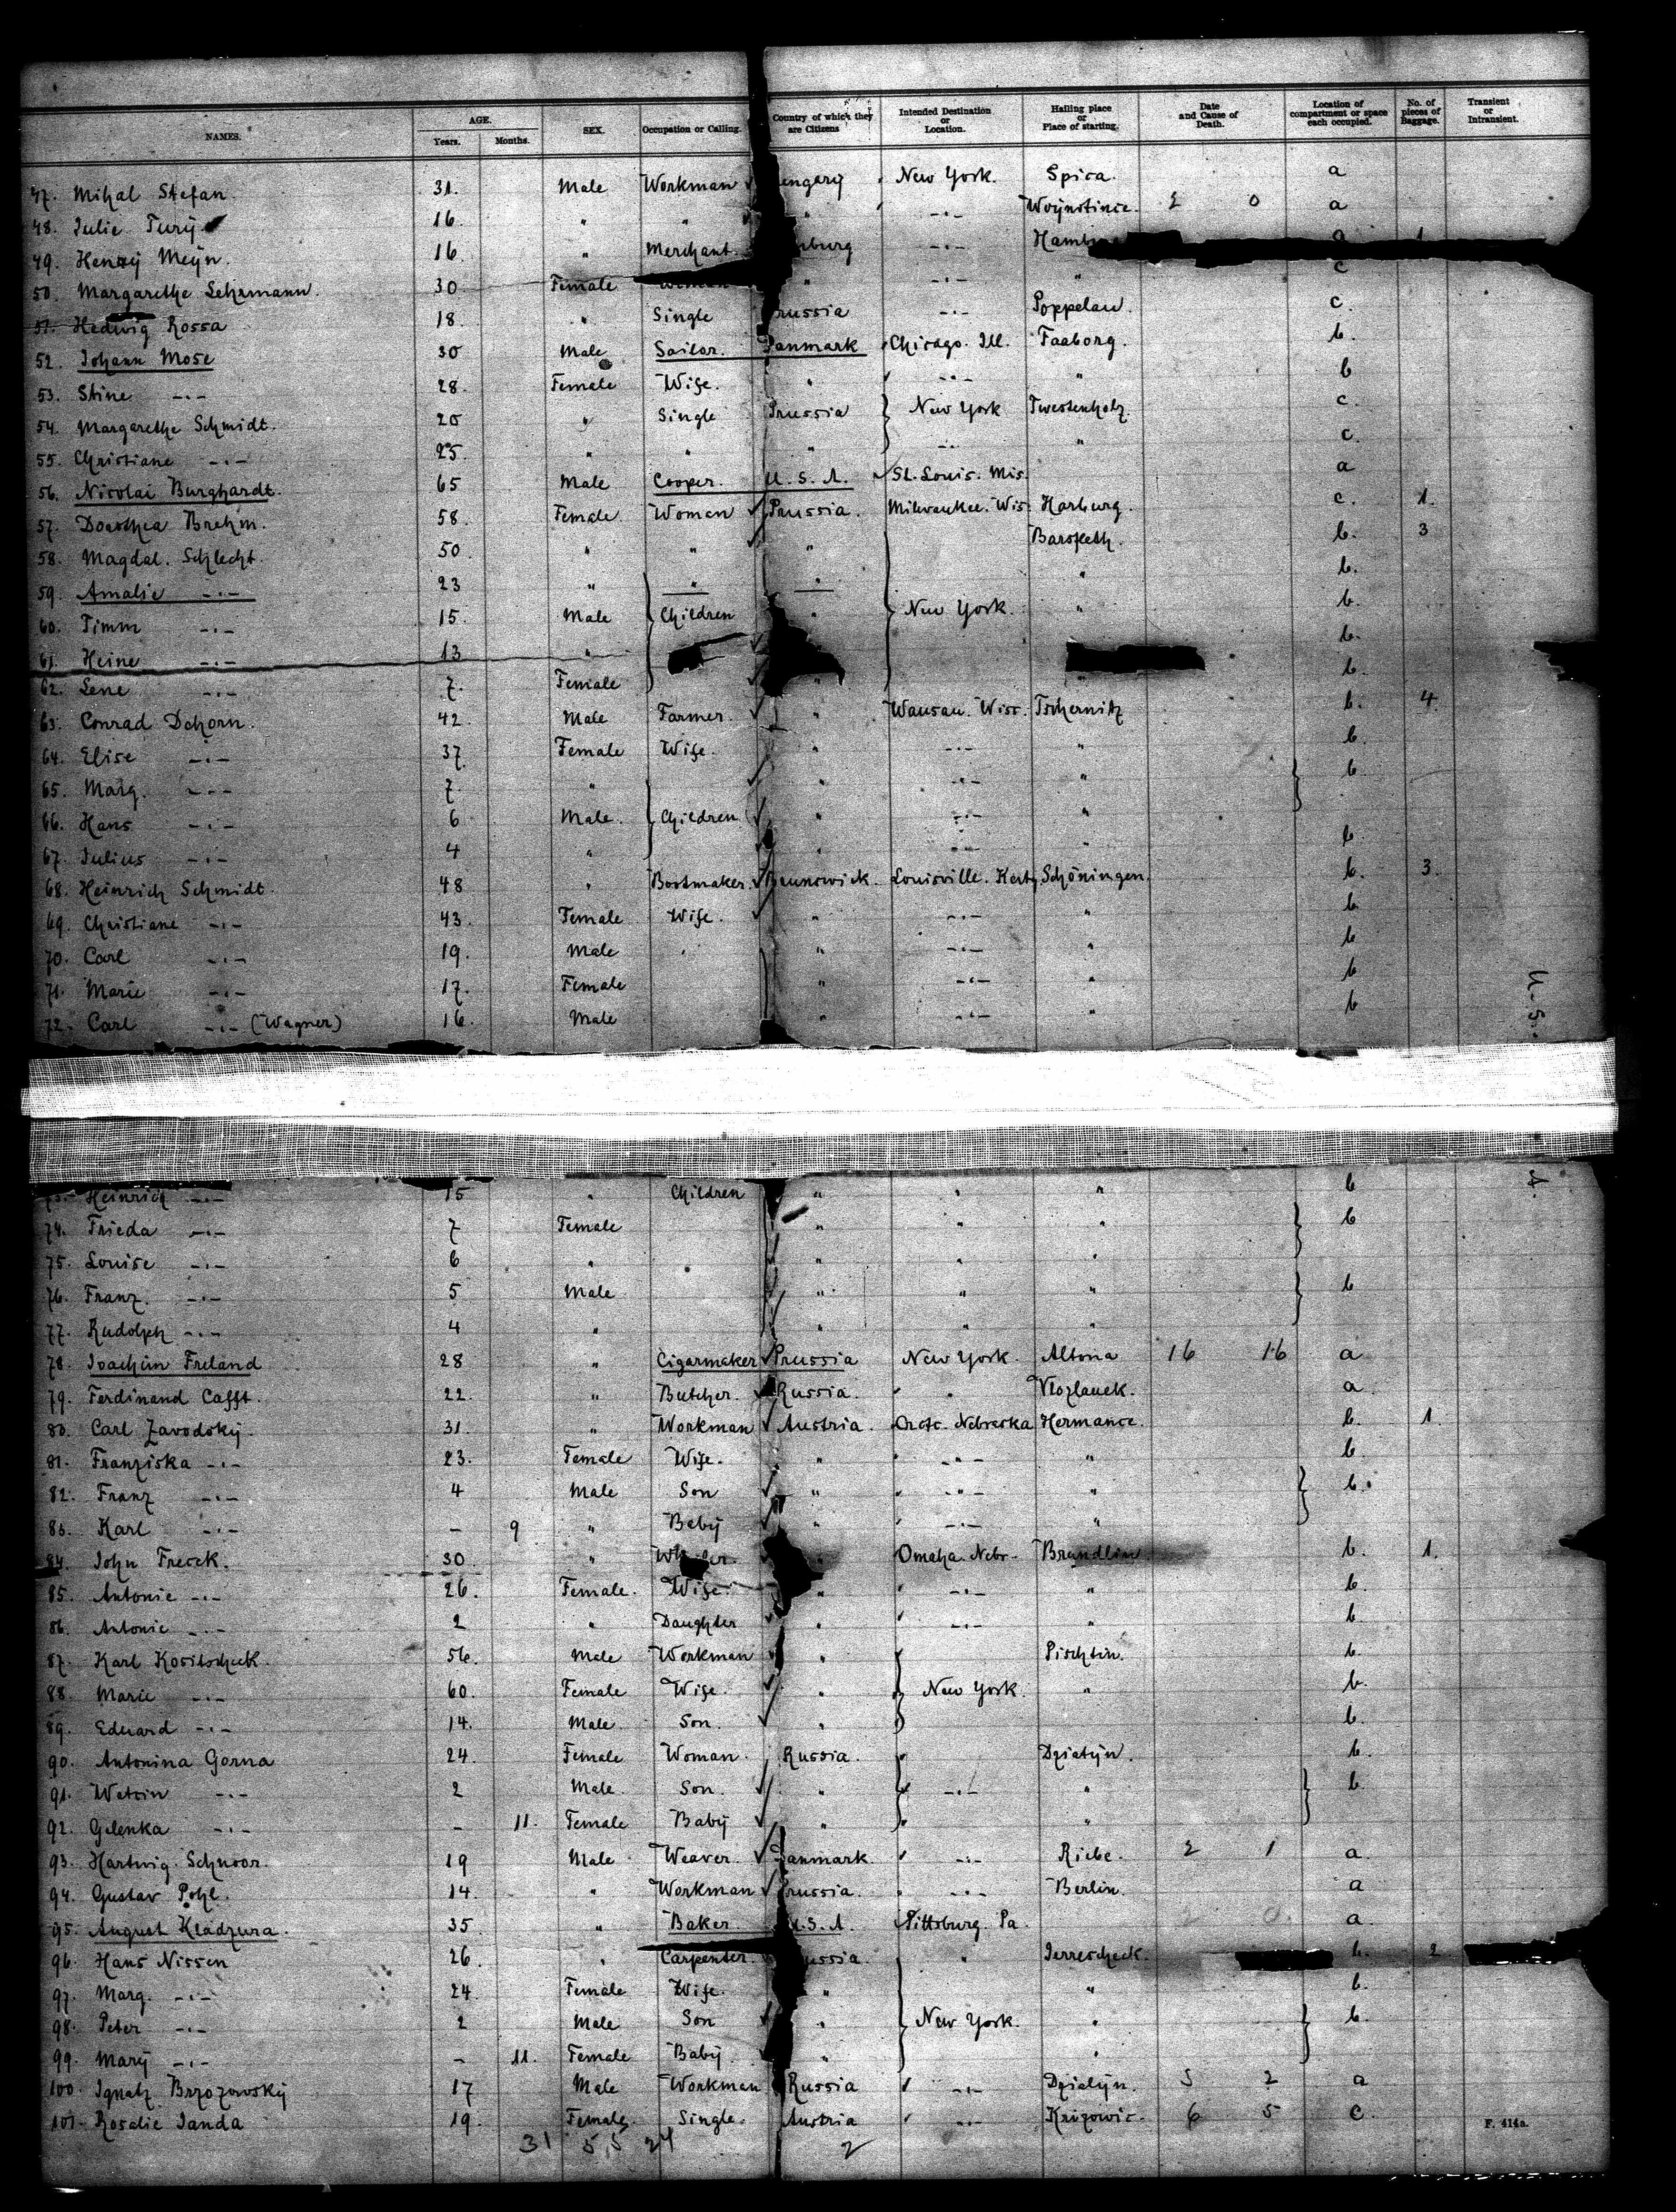 NAMES. AGE. Years. Months. SEX. Occupation or Calling. Country of which they are Citizens Intended Destination or Location. Hailing place or Place of starting. Date and Cause of Death. Location of compartment or space each occupied. No. of pieces of Baggage. Transient or Intransient.
47. Mihal Stefan. 31. Male Workman ungarij New York. Spica. a
48. Julie Turij 16 " " " -"- 2 0 a
49. Henrij Meijn. 16. " Merchant. burg -"- Hamb 1
50. Margarethe Lehrmann. 30 Female Woman " -"- " c
51. Hedwig Rossa 18 " Single russia -"- Poppelau. c.
52. Johann Mose 30 Male Sailor. Danmark Chicago. Ill. Faaborg. b.
53. Stine -"- 28. Female Wife. " -"- " b
54. Margarethe Schmidt. 20 " Single Prussia New York Twestenholz. c.
55. Christiane -"- 25. " " " -"- " c
56. Nicolai Burghardt. 65 Male Cooper. U.S.A. St. Louis. Mis. a
57. Dorothea Brehm. 58. Female Woman Prussia. Milwaukee. Wis. Harburg. c. 1.
58. Magdal. Schlecht. 50. " " " Barsfleth. b. 3
59. Amalie -"- 23 " " " " b.
60. Timm -"- 15. Male Children " New York. " b.
61. Heine -"- 13 " b.
62. Lene -"- 7. Female " " b.
63. Conrad Dehorn. 42. Male Farmer. " Wausau. Wisc. Tschernitz b. 4.
64. Elise -"- 37. Female Wife. " -"- " b.
65. Marg. -"- 7. " " -"- " b.
66. Hans -"- 6 Male. Children " -"- "
67. Julius -"- 4 " " -"- " b.
68. Heinrich Schmidt. 48 " Bootmaker. Braunswick. Louisville. Kenty Schöningen. b. 3.
69. Christiane -"- 43. Female Wife. " -"- " b
70. Carl -"- 19. Male " " -"- " b
71. Marie -"- 17. Female " -"- " b
72. Carl -"- (Wagner) 16. Male " -"- " b
U.S.
A.
73. Heinrich -"- 15 " Children " " " b
74. Frieda -"- 7 Female " " " b
75. Louise -"- 6 " " " "
76. Franz. -"- 5 Male " " " b
77. Rudolph -"- 4 " " " "
78. Joachim Freland 28 " Cigarmaker Prussia New York. Altona 16 16 a
79. Ferdinand Cafft. 22. " Butcher. Russia. " Vlozlauek. a
80. Carl Zavodskij. 31. " Workman Austria. Nebraska Hermance. b. 1.
81. Franziska -"- 23. Female Wife. " -"- " b.
82. Franz -"- 4 Male Son " -"- " b.
83. Karl -"- - 9 " Babij " -"- "
84. John Freeck. 30. " " Omaha. Nebr. Brandlin b. 1.
85. Antonie -"- 26. Female. Wife. " -"- " b.
86. Antonie -"- 2 " Daughter " -"- " b.
87. Karl Kositscheck. 56. Male Workman " Pischtin. b.
88. Marie -"- 60. Female Wife. " New York. " b.
89. Eduard -"- 14. Male Son. " b.
90. Antonina Gorna 24. Female Woman. Russia. " Dzialijn. b.
91. -"- 2 Male. Son. " -"- " b.
92. Gelenka -"- - 11. Female Babij " "
93. Hartwig. Schnoor. 19 Male Weaver. Danmark. -"- Riebe. 2 1 a.
94. Gustav Pohl. 14. " Workman russia. -"- Berlin. a
95. August Kladzura. 35 " Baker. U.S.A. Pittsburg. Pa. a.
96. Hans Nissen 26. " Carpenter. ussia. " b. 2
97. Marg. -"- 24. Female Wife. " " b.
98. Peter -"- 2 Male Son " New York. " b.
99. Marij -"- - 11. Female Babij. " "
100. Ignatz Brzozowskij 17 Male Workman Russia -"- Dzialijn. 5 2 a
101. Rosalie Janda 19. Female. Single. Austria -"- Krizowic. 6 5 c.
31 55 24 2
F. 414a.